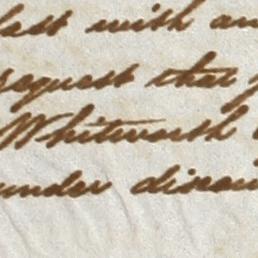 last wish an
request that
Whitworth
under disea